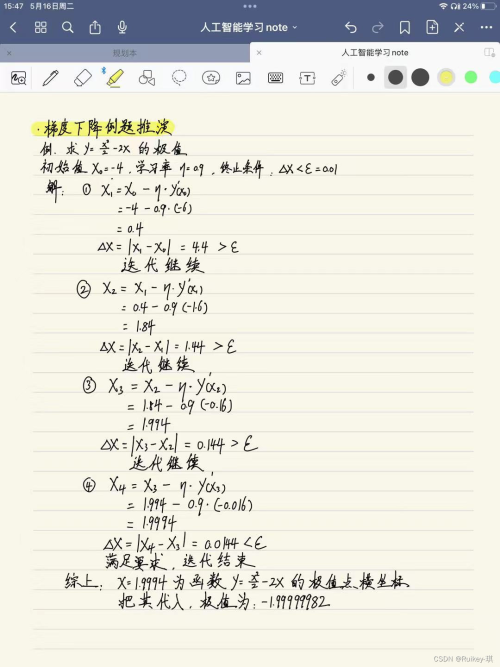 15:47 5月16日周二
24%
人工智能学习note
规划本
人工智能学习note
·梯度下降例题推演
例:求y=x²/2-2x 的极值
初始值X₀=-4,学习率η=0.9,终止条件,ΔX<ε=0.01
解: ① X₁=X₀-η·y'(x₀)
=-4-0.9·(-6)
=0.4
ΔX=|X₁-X₀|=4.4>ε
迭代继续
② X₂=X₁-η·y'(x₁)
=0.4-0.9(-1.6)
=1.84
ΔX=|X₂-X₁|=1.44>ε
迭代继续,
③ X₃=X₂-η·y'(x₂)
=1.84-0.9(-0.16)
=1.994
ΔX=|X₃-X₂|=0.144>ε
迭代继续,
④ X₄=X₃-η·y'(x₃)
=1.994-0.9·(-0.016)
=1.9994
ΔX=|X₄-X₃|=0.0144<ε
满足要求,迭代结束
综上:X=1.9994为函数y=x²/2-2x的极值点横坐标
把其代入,极值为:-1.99999982
CSDN @Ruikey-琪